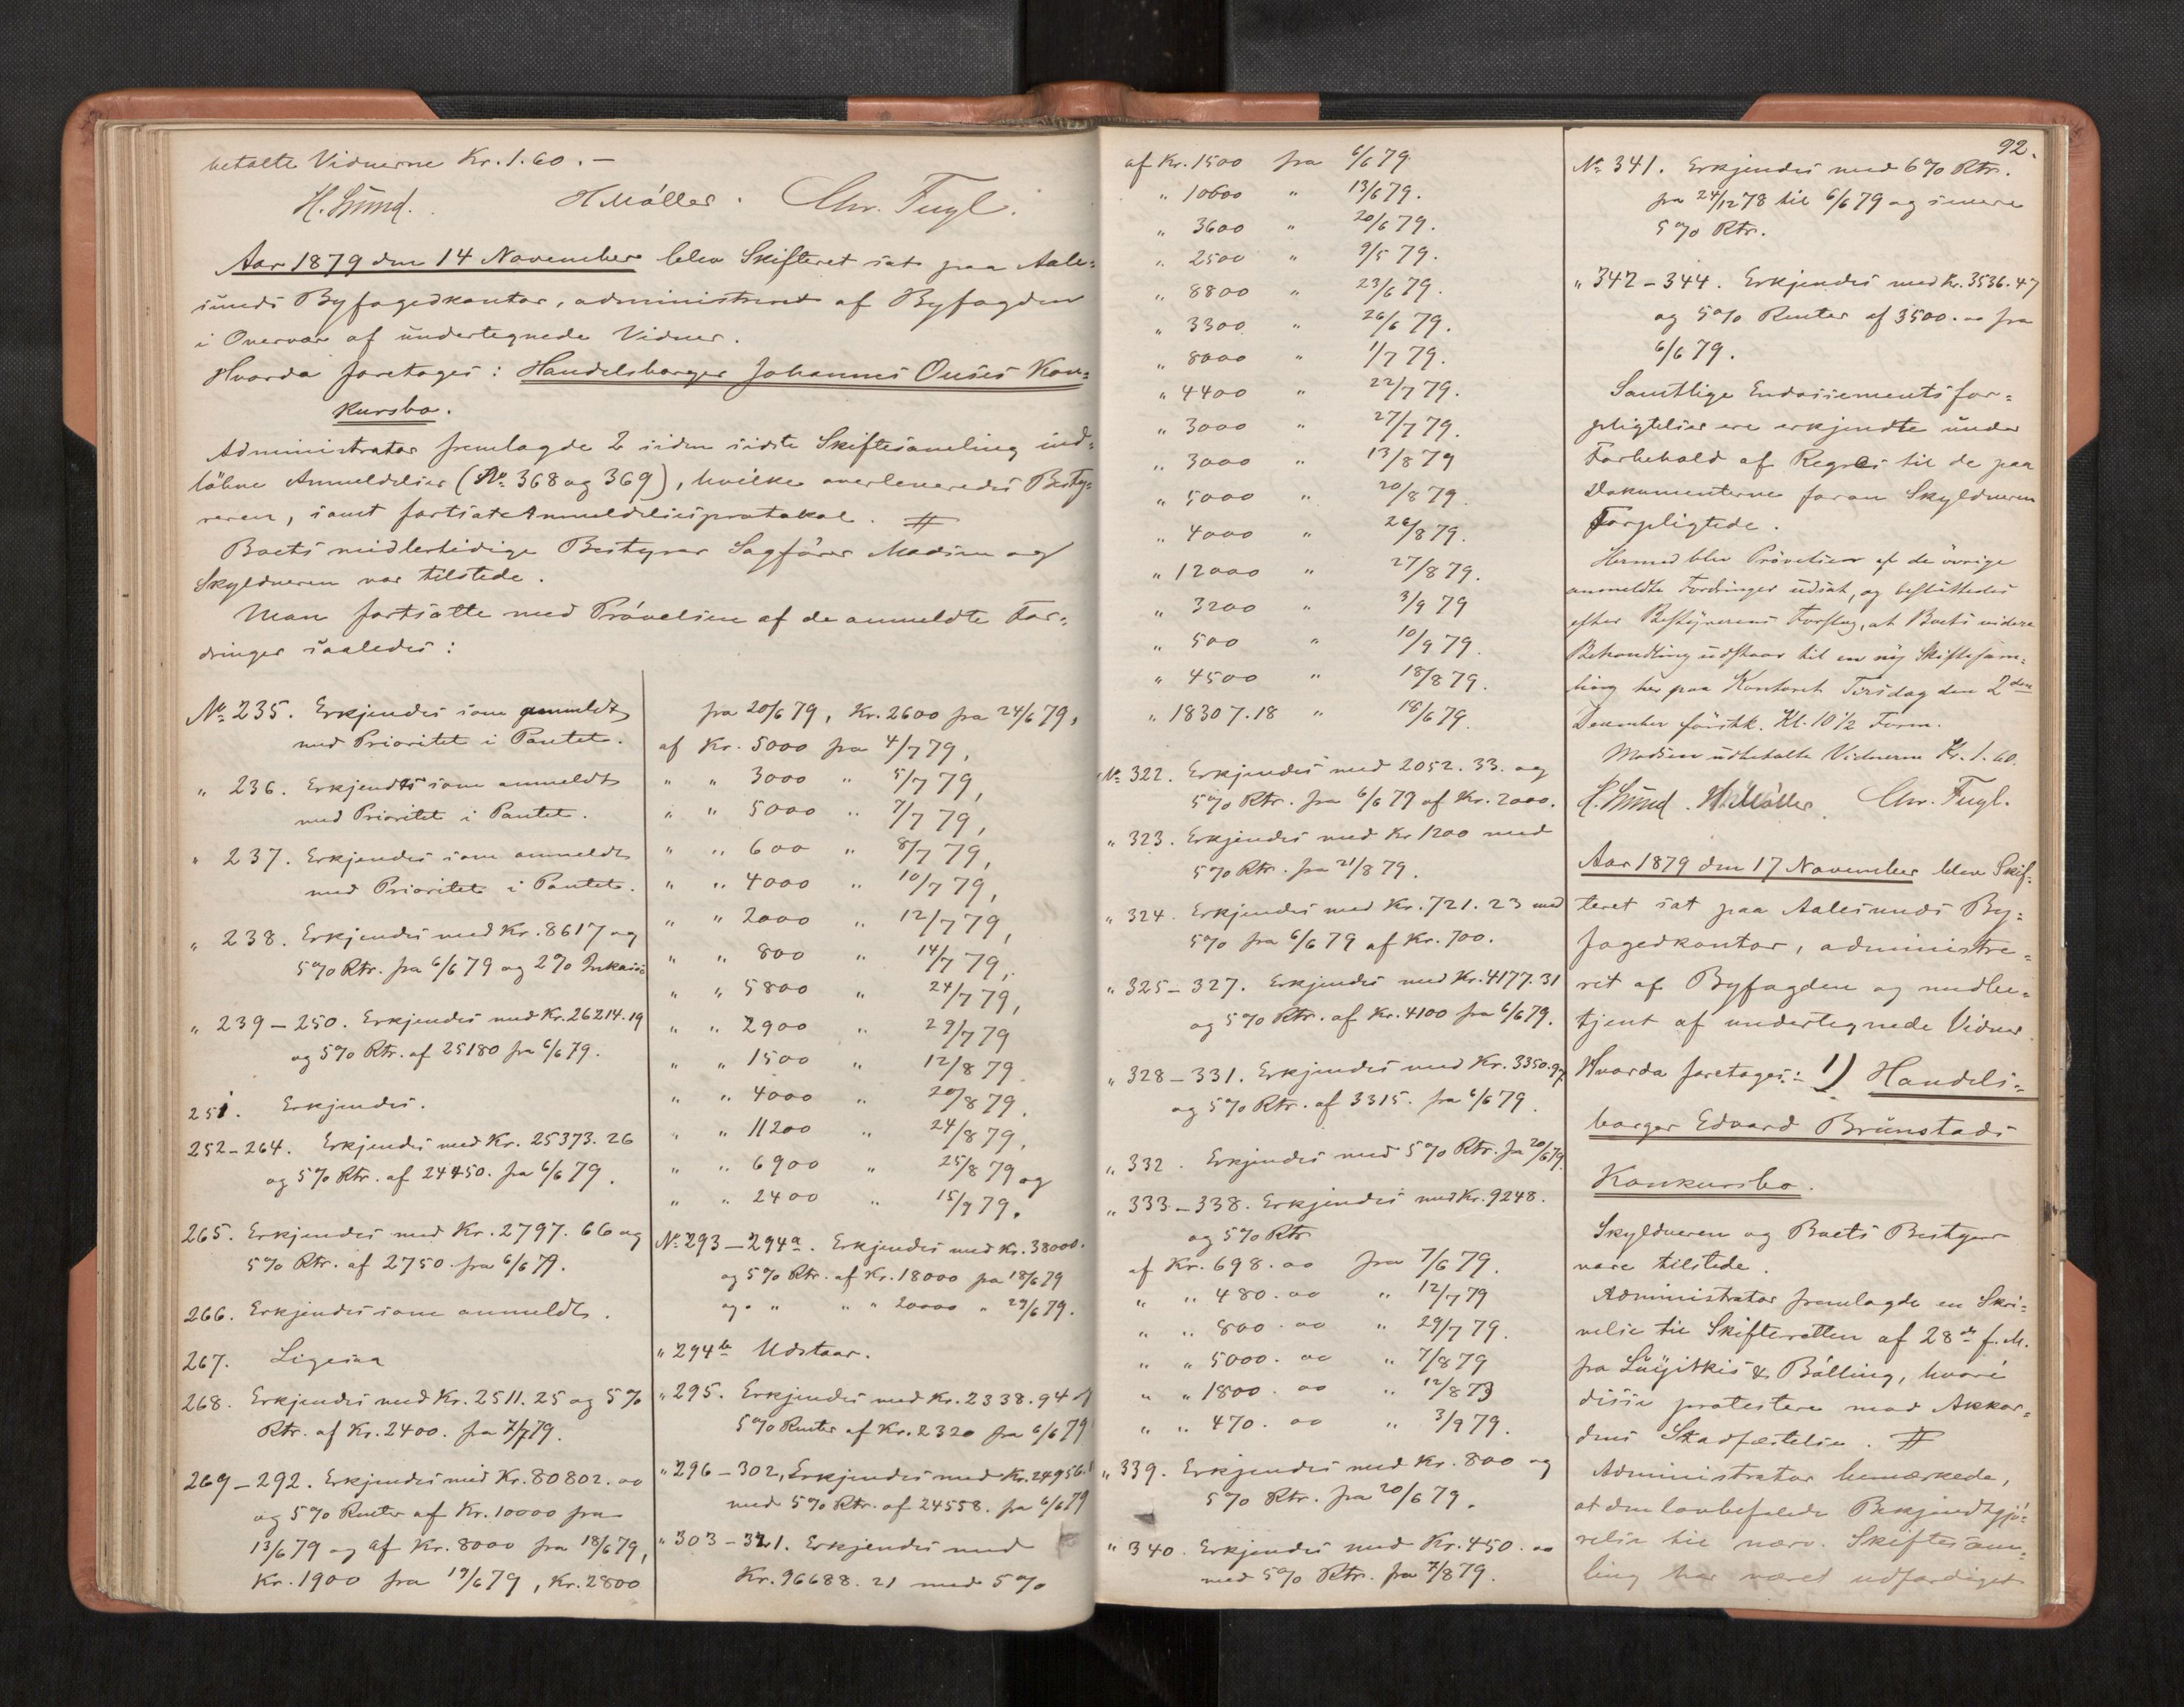 betalte Vidnerne Kr. 1.60. —
H. Sünd. H Møller. Chr. Fugl.
Aar 1879 den 14 November blev Skifteret sat paa Aale-
sunds Byfogedkontor, administreret af Byfogden
i Overvær af undertegnede Vidner.
Hvorda foretoges: Handelsborger Johannes Ouses Kon-
kursbo.
Administrator fremlagde 2 siden sidste Skiftesamling ind-
løbne Anmeldelser (No 368 og 369), hvilke overleveredes Besty-
reren, samt fortsat Anmeldelsesprotokol. #
Boets midlertidige Bestyrer Sagfører Madsen og
Skyldneren var tilstede.
Man fortsatte med Prøvelsen af de anmeldte For-
dringer saaledes:
No 235. Erkjendes som anmeldt
med Prioritet i Pantet.
" 236. Erkjendes som anmeldt
med Prioritet i Pantet.
" 237. Erkjendes som anmeldt
med Prioritet i Pantet.
" 238. Erkjendes med Kr. 8617 og
5% Rtr. fra 6/6 79 og 2% Inkasso
" 239 – 250. Erkjendes med Kr. 26214.19
og 5% Rtr. af 25180 fra 6/6 79.
251. Erkjendes.
252 – 264. Erkjendes med Kr. 25373.26
og 5% Rtr. af 24450. fra 6/6 79.
265. Erkjendes med Kr. 2797.66 og
5% Rtr. af 2750 fra 6/6 79.
266. Erkjendes som anmeldt.
267. Ligesaa
268. Erkjendes med Kr. 2511.25 og 5%
Rtr. af Kr. 2400. fra 7/7 79.
269 – 292. Erkjendes med Kr. 80802.00
og 5% Renter af Kr. 10000 fra
13/6 79 og af Kr. 8000 fra 18/6 79,
Kr. 1900 fra 19/6 79, Kr. 2800
fra 20/6 79, Kr. 2600 fra 24/6 79,
af Kr. 5000 fra 4/7 79,
" " 3000 " 5/7 79,
" " 5000 " 7/7 79,
" " 600 " 8/7 79,
" " 4000 " 10/7 79,
" " 2000 " 12/7 79,
" " 800 " 14/7 79,
" " 5800 " 24/7 79,
" " 2900 " 29/7 79
" " 1500 " 12/8 79.
" " 4000 " 20/8 79.
" " 11200 " 24/8 79.
" " 6900 " 25/8 79 og
" " 2400 " 15/9 79.
No 293 – 294a. Erkjendes med Kr. 38000.
og 5% Rtr. af Kr. 18000 fra 18/6 79
og " " " 20000 " 29/6 79.
" 294b Udstaar.
" 295. Erkjendes med Kr. 2338.94 og
5% Renter af Kr. 2320 fra 6/6 79
" 296 – 302. Erkjendes med Kr. 24956.
med 5% Rtr. af 24558. fra 6/6 79
" 303 – 321. Erkjendes med
Kr. 96688.21 med 5%
92.
af Kr. 1500 fra 6/6 79.
" 10600 " 13/6 79.
" 3600 " 20/6 79.
" 2500 " 9/5 79.
" 8800 " 23/6 79.
" 3300 " 26/6 79.
" 8000 " 1/7 79.
" 4400 " 22/7 79.
" 3000 " 27/7 79.
" 3000 " 13/8 79
" 5000 " 20/8 79.
" 4000 " 26/8 79.
" 12000 " 27/8 79.
" 3200 " 3/9 79
" 500 " 10/9 79.
" 4500 " 18/8 79.
" 18307.18 " 18/6 79.
No 322. Erkjendes med 2052.33. og
5% Rtr. fra 6/6 79 af Kr. 2000.
" 323. Erkjendes med Kr 1200 med
5% Rtr. fra 21/8 79.
" 324. Erkjendes med Kr. 721.23 med
5% fra 6/6 79 af Kr. 700.
" 325 – 327. Erkjendes med Kr. 4177.31
og 5% Rtr. af Kr. 4100 fra 6/6 79.
" 328 – 331. Erkjendes med Kr. 3350.97
og 5% Rtr. af 3315. fra 6/6 79.
" 332. Erkjendes med 5% Rtr. fra 20/6 79.
" 333 – 338. Erkjendes med Kr. 9248.
og 5% Rtr
af Kr. 698.00 fra 7/6 79.
" " 480.00 " 12/7 79
" " 800.00 " 29/7 79.
" " 5000.00 " 7/8 79
" " 1800.00 " 12/8 79
" " 470.00 " 3/9 79.
" 339. Erkjendes med Kr. 800 og
5% Rtr. fra 20/6 79.
" 340. Erkjendes med Kr. 450.00
med 5% Rtr. fra 7/8 79.
No 341. Erkjendes med 6% Rtr.
fra 24/12 78 til 6/6 79 og senere
5% Rtr.
" 342 – 344. Erkjendes med Kr. 3536.47
og 5% Renter af 3500.00 fra
6/6 79.
Samtlige Endossementsfor-
pligtelser ere erkjendte under
Forbehold af Regres til de paa
Dokumenterne foran Skyldneren
Forpligtede.
Hermed blev Prøvelsen af de øvrige
anmeldte Fordringer udsat, og besluttedes
efter Bestyrerens Forslag, at Boets videre
Behandling udstaar til en ny Skiftesam-
ling her paa Kontoret Tirsdag den 2den
December førstk. Kl. 10 1/2 Form.
Madsen udbetalte Vidnerne Kr. 1.60.
H. Sünd. H Møller. Chr. Fugl.
Aar 1879 den 17 November blev Skif-
teret sat paa Aalesunds By-
fogedkontor, administre-
ret af Byfogden og medbe-
tjent af undertegnede Vidner.
Hvorda foretoges: 1) Handels-
borger Edvard Brünstads
Konkursbo.
Skyldneren og Boets Bestyrer
vare tilstede.
Administrator fremlagde en Skri-
velse til Skifteretten af 28de f. M.
fra & Bölling, hvori
disse protestere mod Akkor-
dens Stadfæstelse. #
Administrator bemærkede,
at den lovbefalede Bekjendtgjø-
relse til nærv. Skiftesam-
ling har været udfærdiget